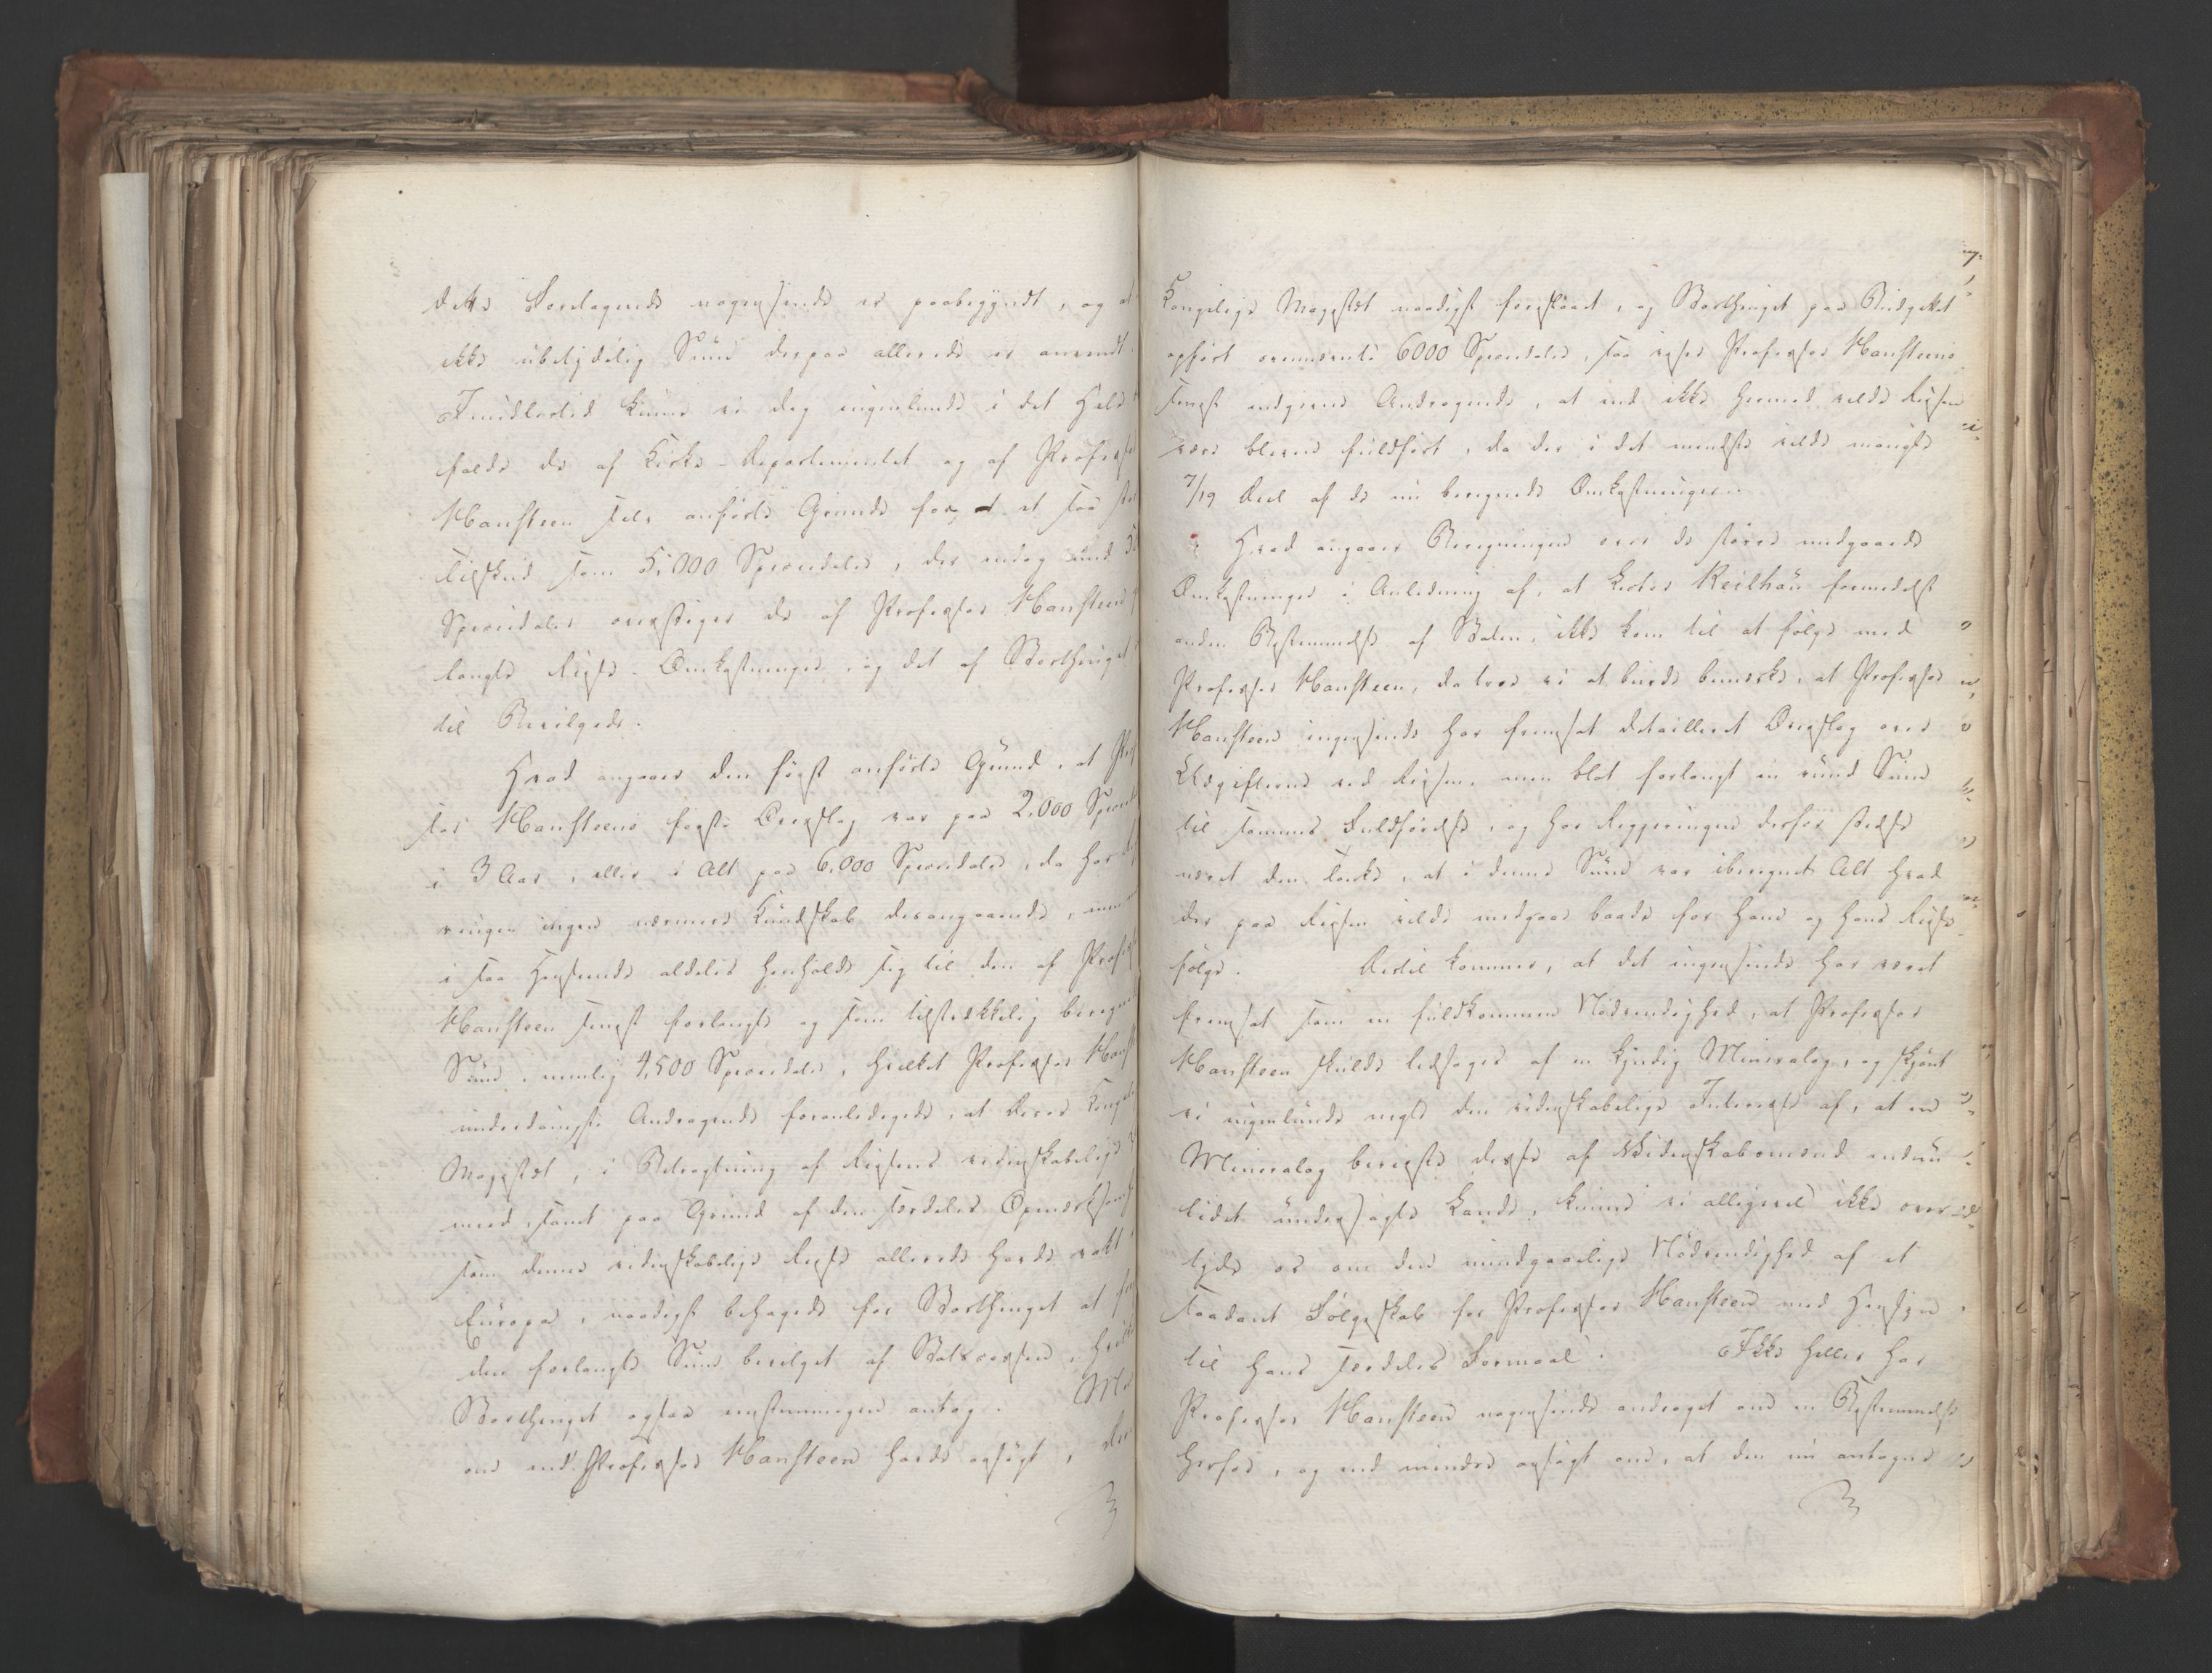 dette Foretagende nogensinde er paabegyndt, og at
ikke ubetydelig Sum derpaa allerede er anvendt.
Imidlertid kunne vi dog ingenlunde i det Hele
falde de af Kirke-Departementet og af Profess
Hansteen selv anførte Grunde for, at et saa stor
Tilskud som 5,000 Speciedaler, der endog med
Speciedaler overstiger de af Professor Hansteen
langte Reise-Omkostninger, og det af Storthinget
til Bevilgede.
Hvad angaaer den først anførte Grund, at Prof
sor Hansteens første Overslag var paa 2,000 Specied
i 3 Aar, eller i Alt paa 6,000 Speciedaler, da har
ringen ingen nærmere Kundskab derangaaende, men
i saa Henseende aldeles henholde sig til den af Profess
Hansteen senest forlangte og som tilstrækkelig beregne
Sum, nemlig 4,500 Speciedaler, hvilket Professor Hanst
underdanigste Andragende foranledigede, at Deres Kongel
Majestæt, i Betragtning af Reisens videnskabelige
med, samt paa Grund af den særdeles Opmærksom
som denne videnskabelige Reise allerede havde vakt
Europa, naadigst behagede for Storthinget at
den forlangte Sum bevilget af Statscassen, hvilk
Storthinget ogsaa eenstemmigen antog. Me
om end Professor Hansteen havde ansøgt,
Kongelige Majestæt naadigst foreslaaet, og Storthinget paa Budgettet
opført ovennævnte 6000 Speciedaler, saa viser Professor Hansteens
senest indgivne Andragende, at end ikke hermed vilde Reisen
være bleven fuldført, da der i det mindste vilde mangle
7/19 Deel af de nu beregnede Omkostninger.
Hvad angaaer Beregningen over de større medgaaede
Omkostninger i Anledning af, at Lector Keilhau formedelst
anden Bestemmelse af Staten, ikke kom til at følge med
Professor Hansteen, da troe vi at burde bemærke, at Professor
Hansteen ingensinde har fremsat detailleret Overslag over
Udgifterne ved Reisen, men blot forlangt en rund Sum
til sammes Fuldførelse, og har Regjeringen derfor stedse
været den Tanke, at i denne Sum var iberegnet Alt hvad
der paa Reisen vilde medgaae baade for ham og hans Reise-
følge. Dertil kommer, at det ingensinde har været
fremsat som en fuldkommen Nødvendighed, at Professor
Hansteen skulde ledsages af en kyndig Mineralog, og skjønt
vi ingenlunde negte den videnskabelige Interesse af, at en
Mineralog bereiste disse af Videnskabsmænd endnu
lidet undersøgte Lande, kunne vi alligevel ikke over-
tyde os om den uundgaaelige Nødvendighed af et
saadant Følgeskab for Professor Hansteen med Hensyn
til hans særdeles Formaal. Ikke heller har
Professor Hansteen nogensinde andraget om en Bestemmelse
herfor, og end mindre ansøgt om, at den nu antagne